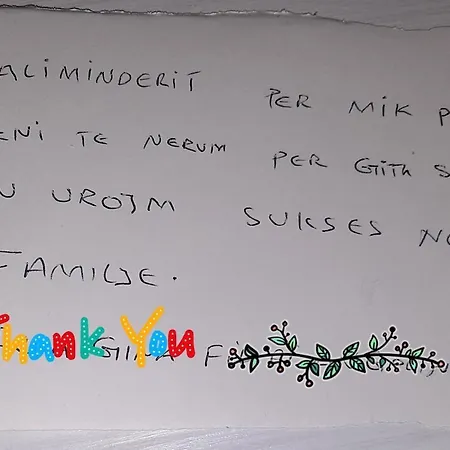 ALIMINDERIT PER MIK P
ENI TE NERUM PER GITH S
U UROJM SUKSES NO
FAMILJE.
Thank You